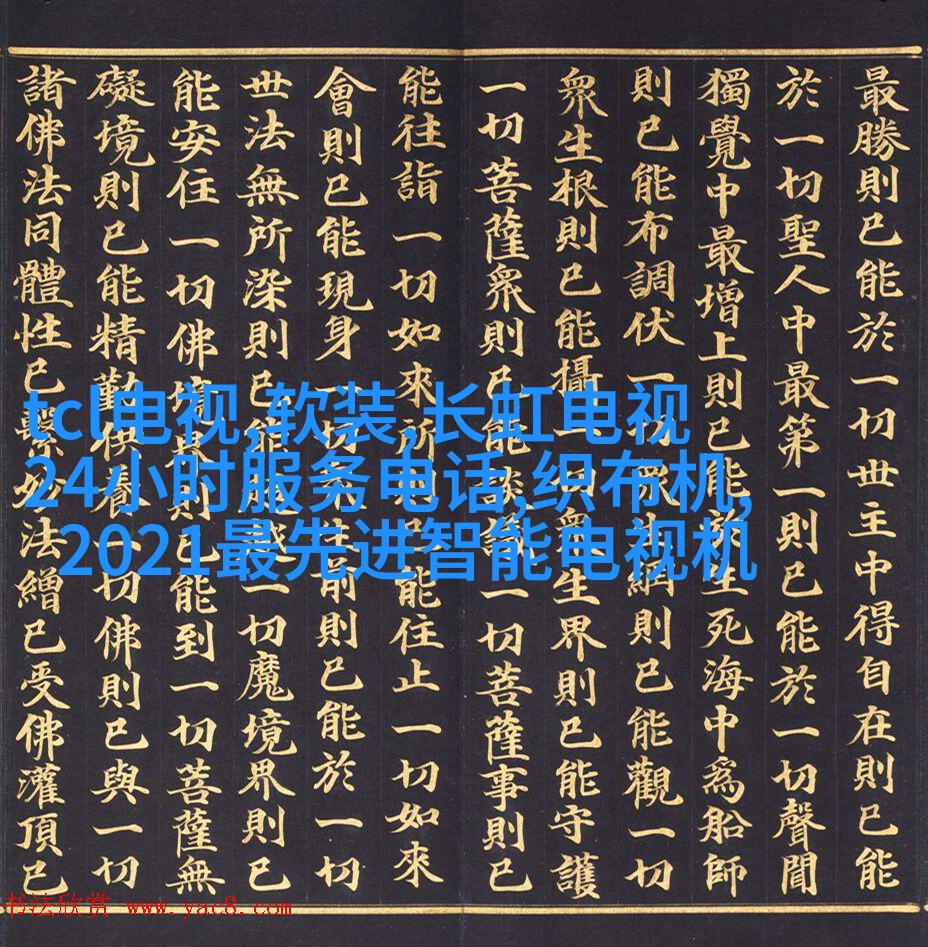 最勝則已能於一切世主中得自在則已能
於一切聖人中最第一則已能於一切聲聞
獨覺中最增上則已能於生死海中爲船師
則已能布調伏一切眾生網則已能觀一切
眾生根則已能攝一切眾生界則已能守護
一切菩薩眾則已能談議一切菩薩事則已
能往詣一切如來所則已能住止一切如來
會則已能現身一切眾生前則已能於一切
世法無所染則已能超越一切魔境界則已
能安住一切佛境界則已能到一切菩薩無
礙境則已能精勤供養一切佛則已與一切
諸佛法同體性已繫妙法繒已受佛灌頂已
tcl电视,软装,长虹电视
24小时服务电话,织布机,
2021最先进智能电视机
书法欣赏 www.yac8.com